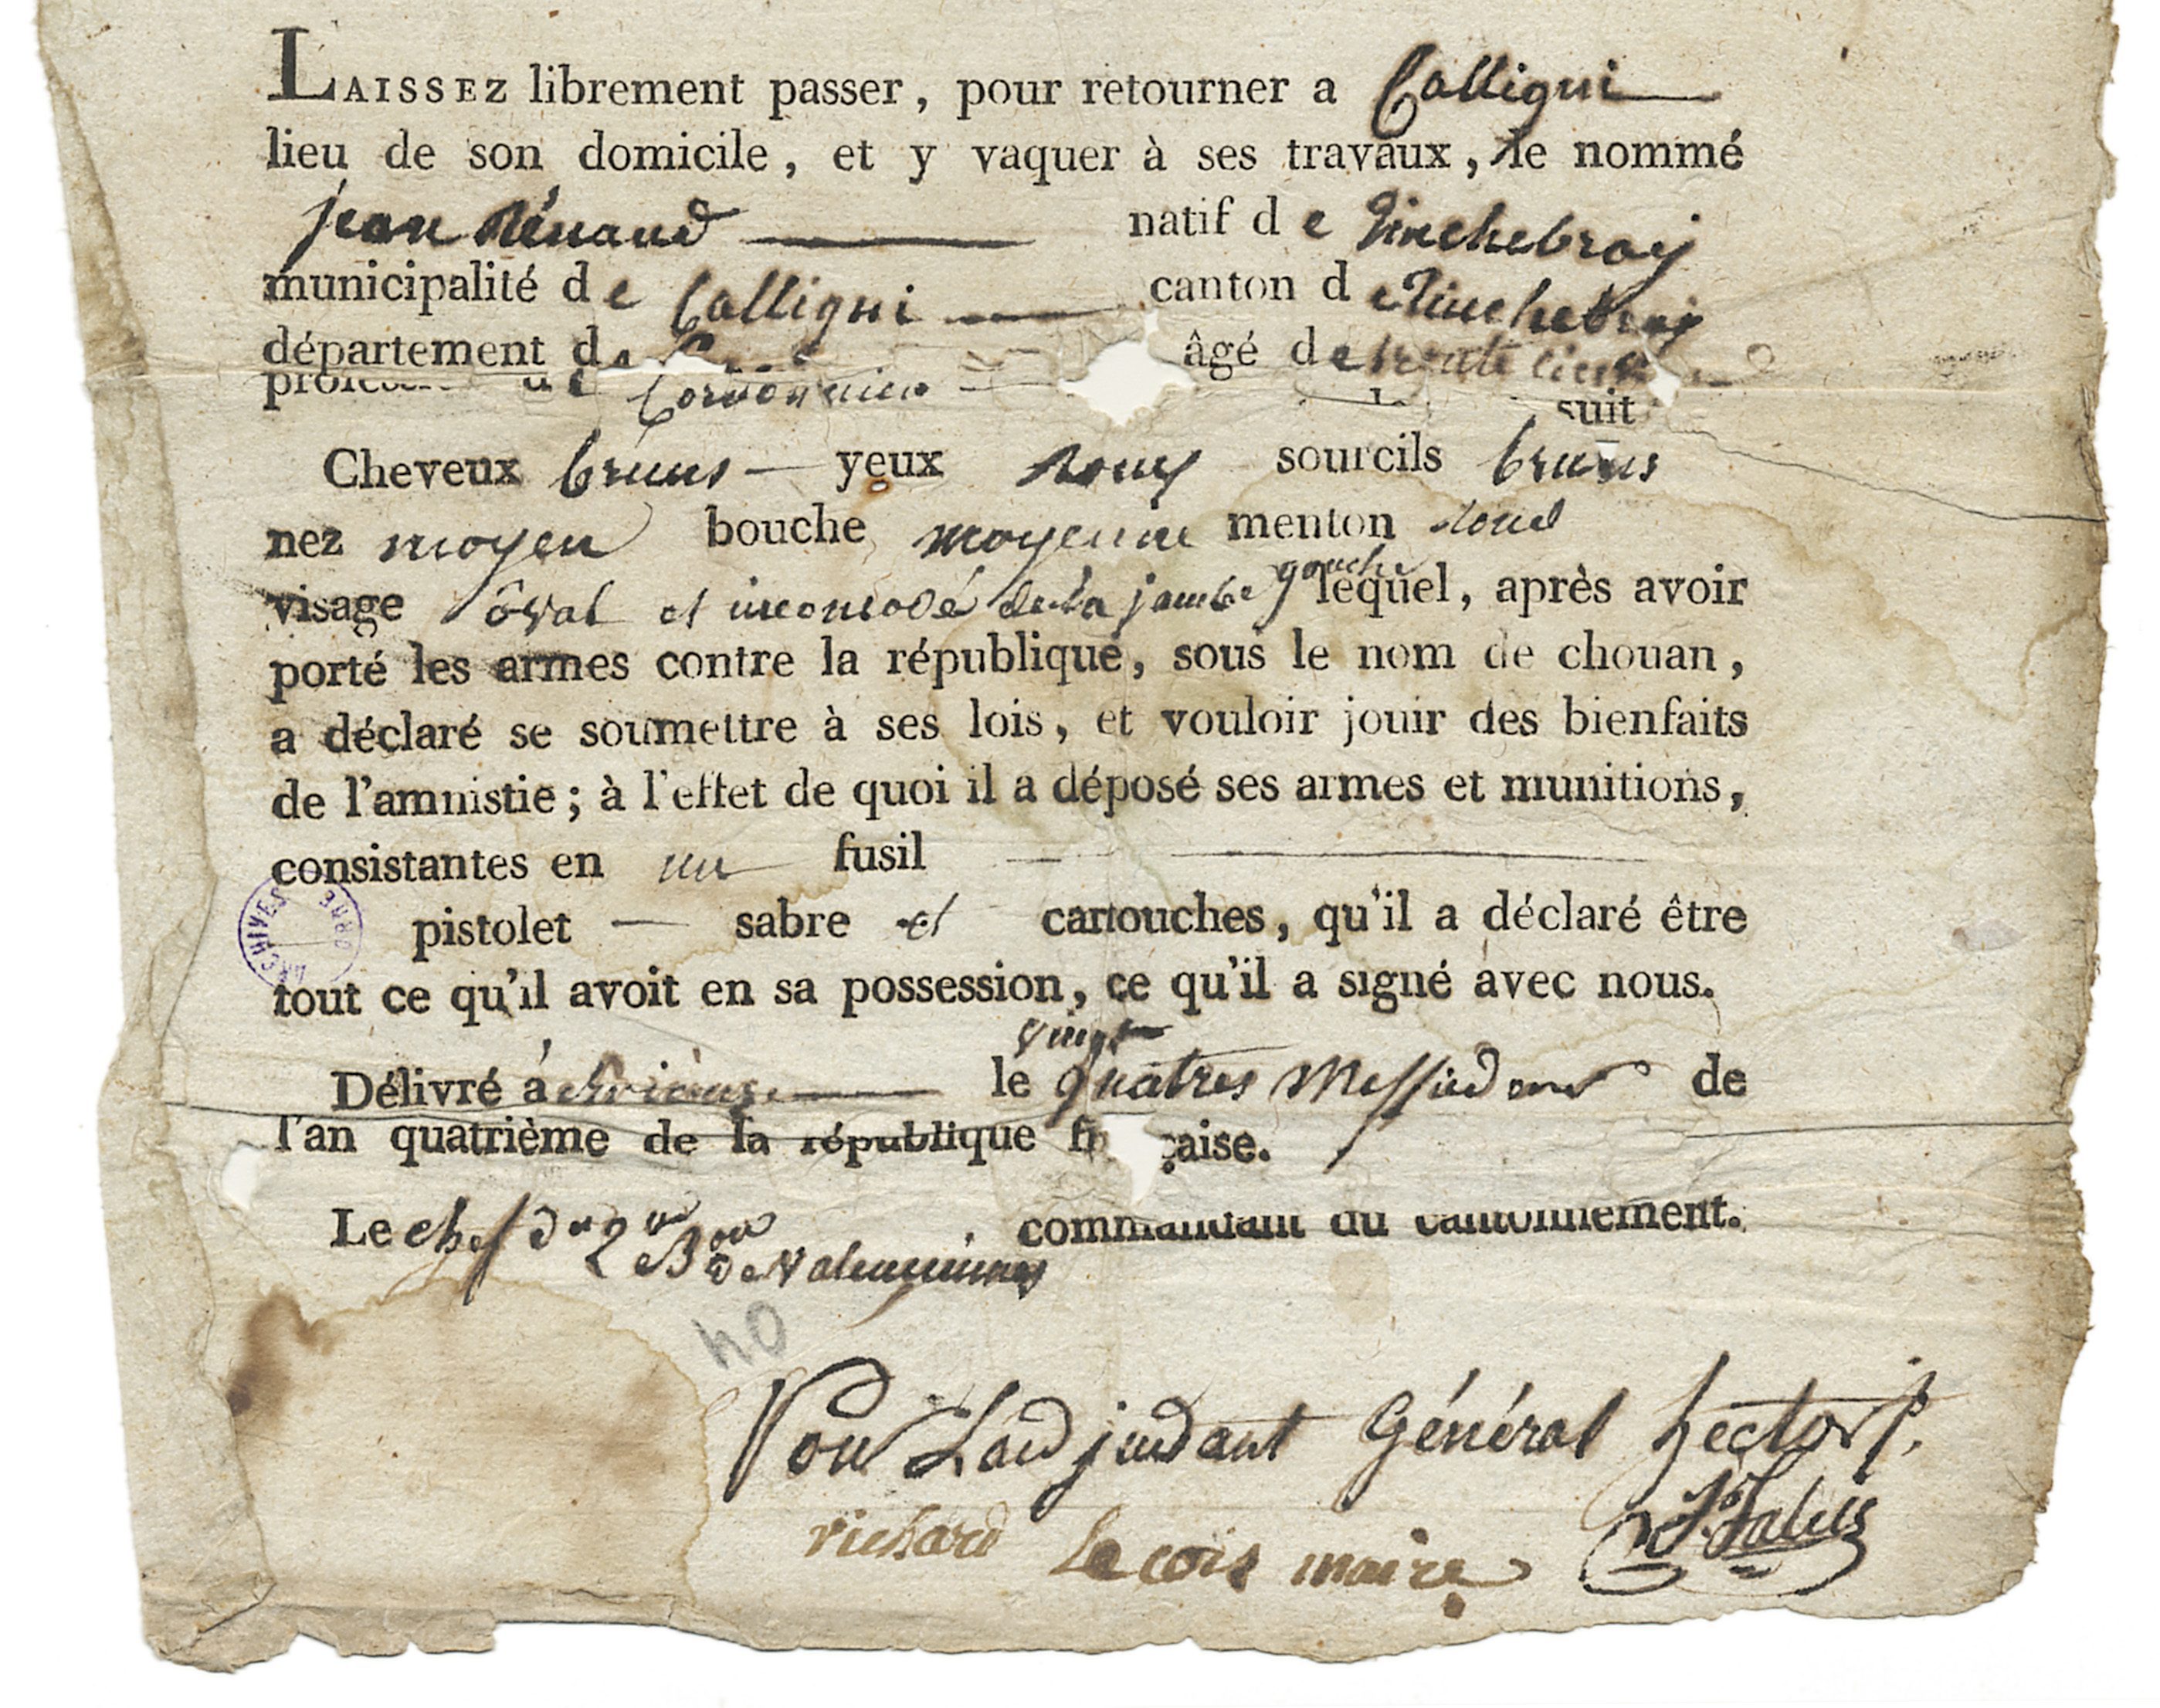 LAISSEZ librement passer, pour retourner a Calligni
lieu de son domicile, et y vaquer à ses travaux, le nommé
jean Rénaud natif d e Tinchebray
municipalité d e Calligni canton d e Tinchebray
département d âgé d e trente cinq
d e Cordonnier suit
Cheveux bruns — yeux roux sourcils bruns
nez moyen bouche moyenne menton rond
visage ôval et incomodé de la jambe gauche lequel, après avoir
porté les armes contre la république, sous le nom de chouan,
a déclaré se soumettre à ses lois, et vouloir jouir des bienfaits
de l'amnistie; à l'effet de quoi il a déposé ses armes et munitions,
consistantes en un fusil
pistolet — sabre et cartouches, qu'il a déclaré être
tout ce qu'il avoit en sa possession, ce qu'il a signé avec nous.
Délivré à le vingt quatres Messidor de
l'an quatrième de la république française.
Le chef du 2 me Bon de Valenciennes commandant du cantonnement.
40
Pour Ladjudant Général hector
richard Lecois maire
ARCHIVES ORNE